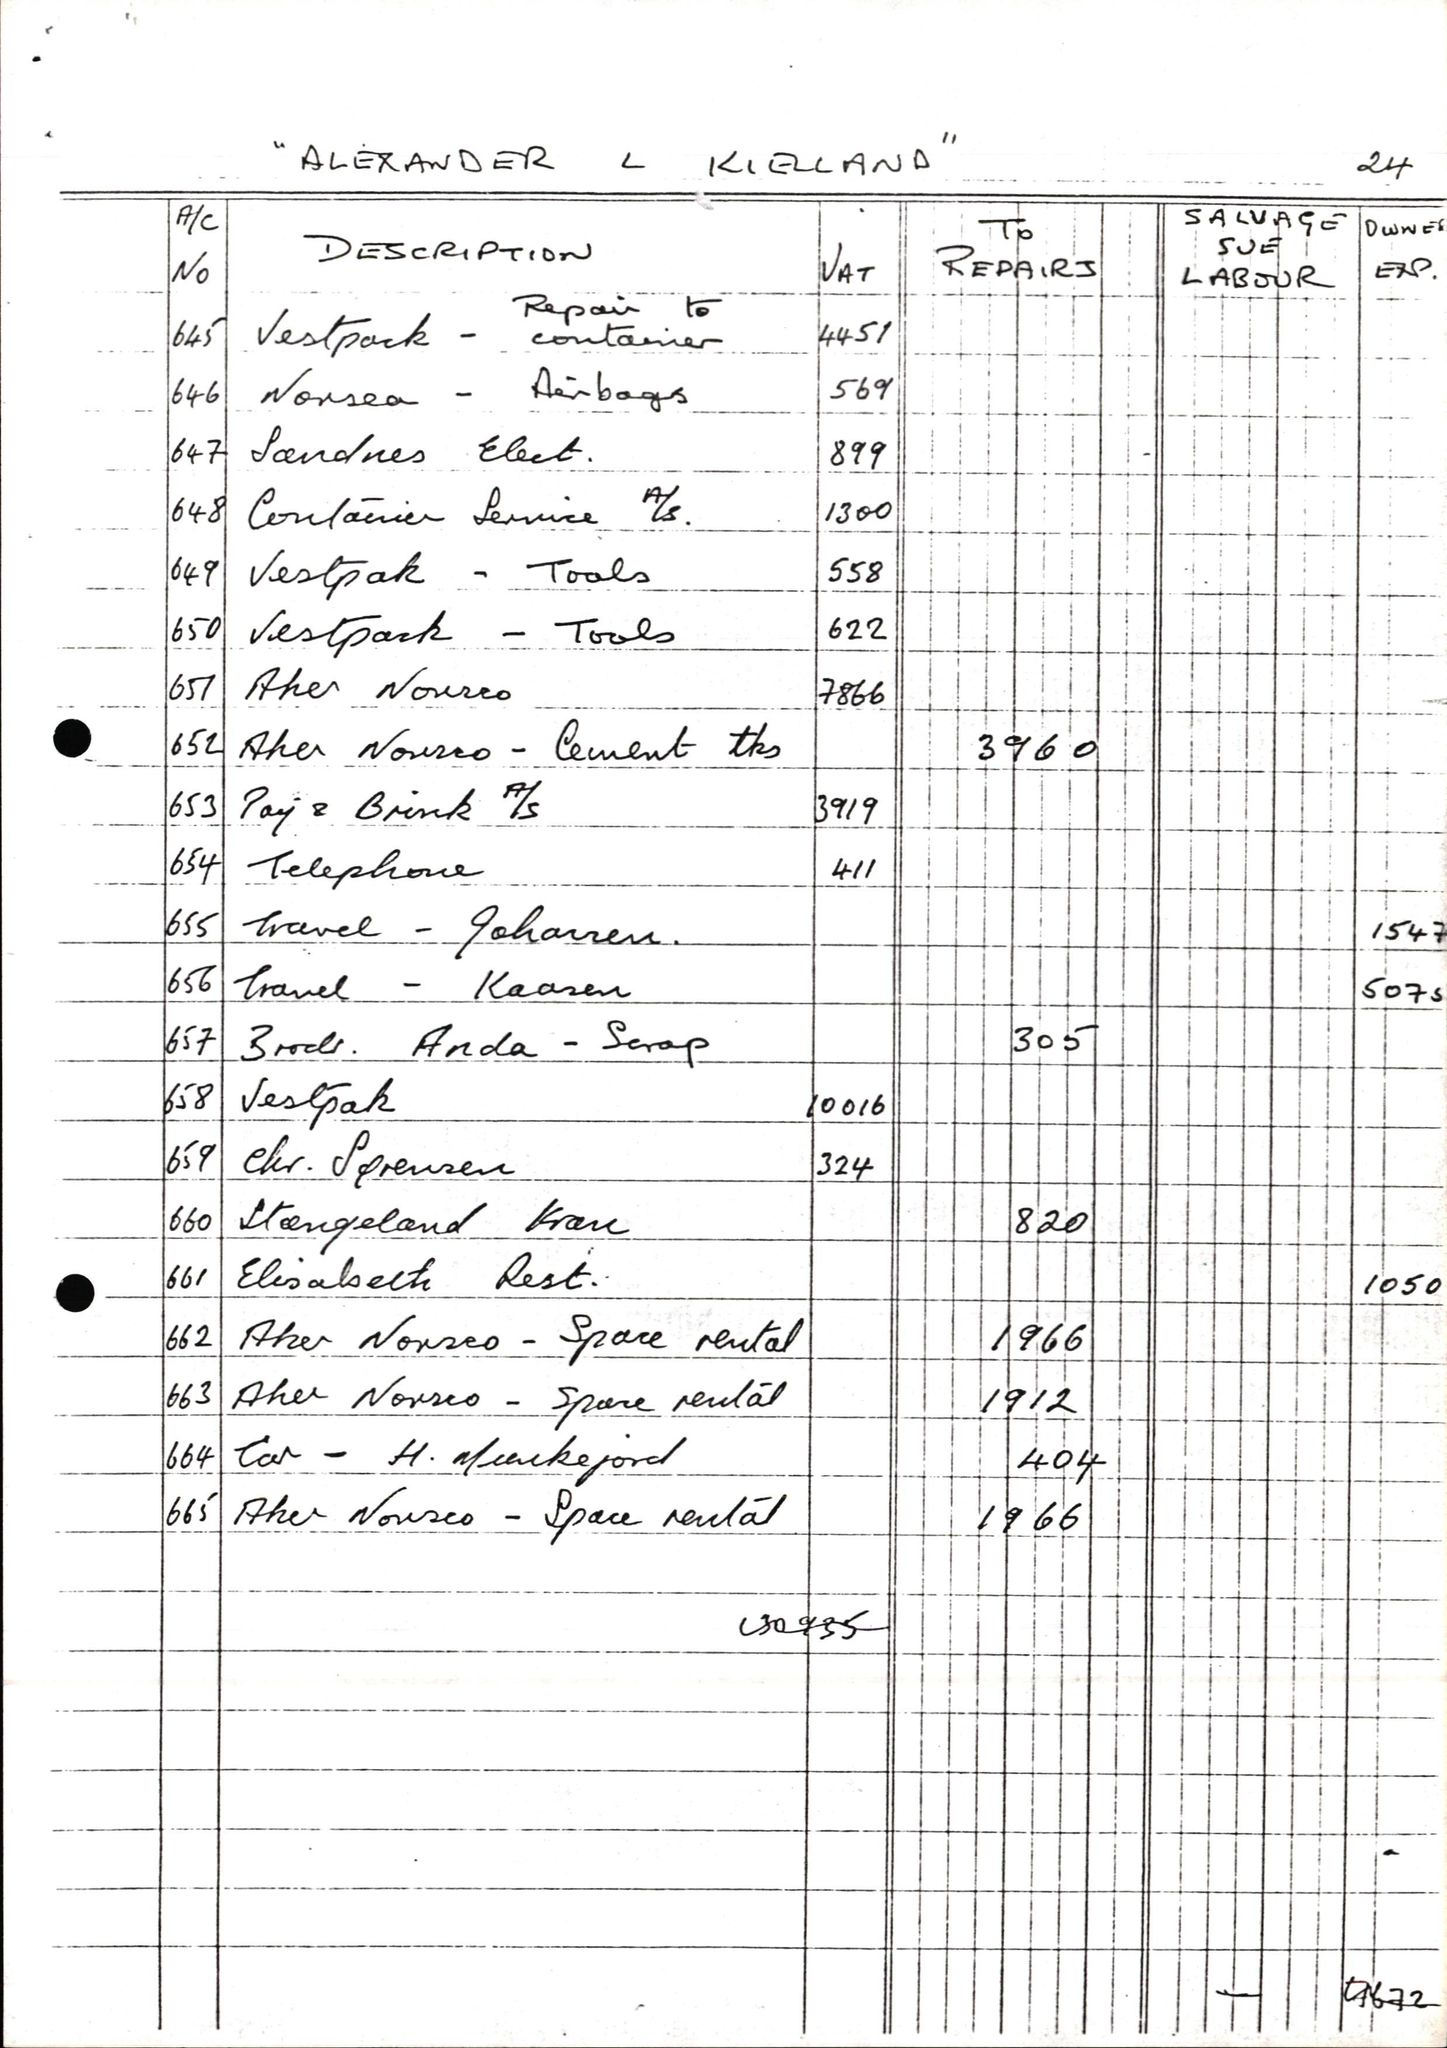 "ALEXANDER L KIELLAND" 24
A/C No DESCRIPTION VAT To REPAIRS SALVAGE SUE LABOUR OWNES EXP.
645 Vestpack - Repair to container 4451
646 Norsea - Airbags 569
647 Sandnes Elect. 899
648 Container Service A/S. 1300
649 Vestpak - Tools 558
650 Vestpack - Tools 622
651 Aker Norsco 7866
652 Aker Norsco - Cement tks 3960
653 Pay & Brink A/S 3919
654 Telephone 411
655 Travel - Johansen. 1547
656 Travel - Kaasen 5075
657 Brodr. Anda - Scrap 305
658 Vestpak 10016
659 Chr. Sørensen 324
660 Stangeland Kran 820
661 Elisabeth Rest. 1050
662 Aker Norsco - Space rental 1966
663 Aker Norsco - Space rental 1912
664 Car - H. Munkejord 404
665 Aker Norsco - Space rental 1966
30935
— 7672